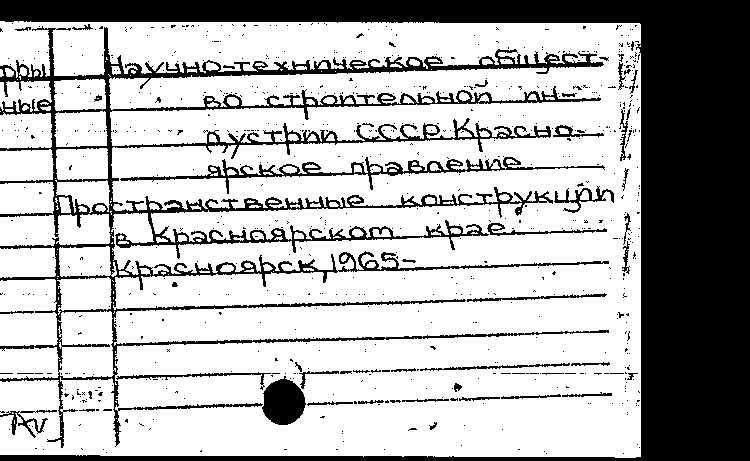 Научно-техническое общест-
во строительной ин-
дустрии СССР. Красно-
ярское правление
Пространственные конструкции
в Красноярском крае.
Красноярск, 1965-